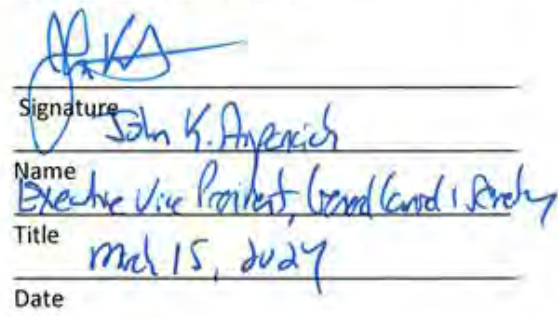 Signature
John K.
Name
Executive Vice President, General Counsel & Secretary
Title
March 15, 2024
Date